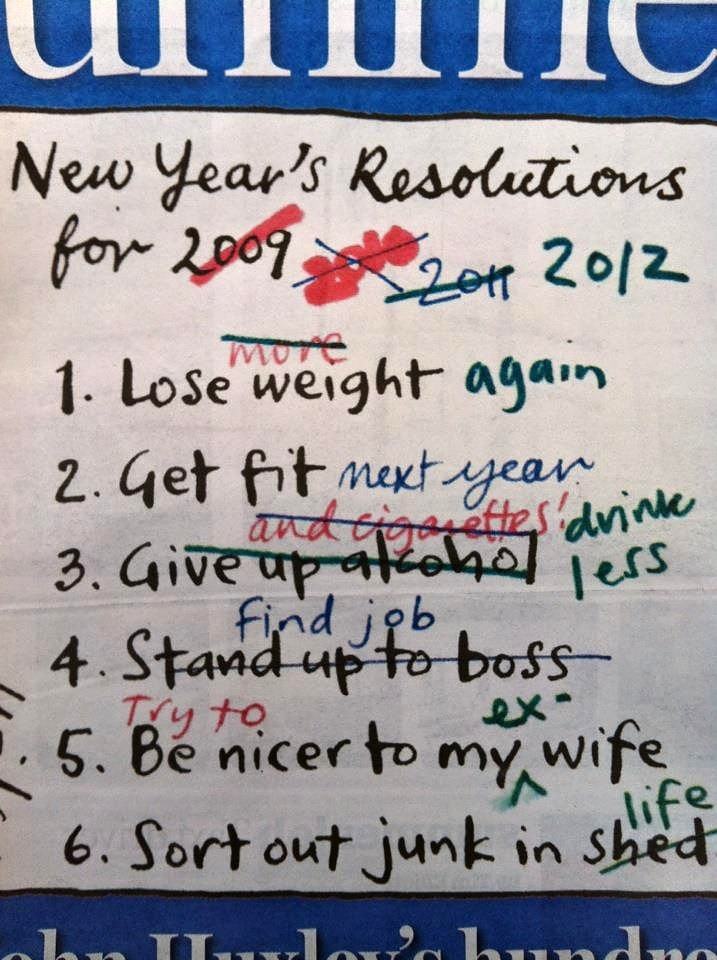 New Year's Resolutions
for 2009 2010 2011 2012
more
1. Lose weight again
2. Get fit next year
and cigarettes! drink
3. Give up alcohol less
find job
4. Stand up to boss
Try to ex-
5. Be nicer to my wife
life
6. Sort out junk in shed
John Huxley's hundre